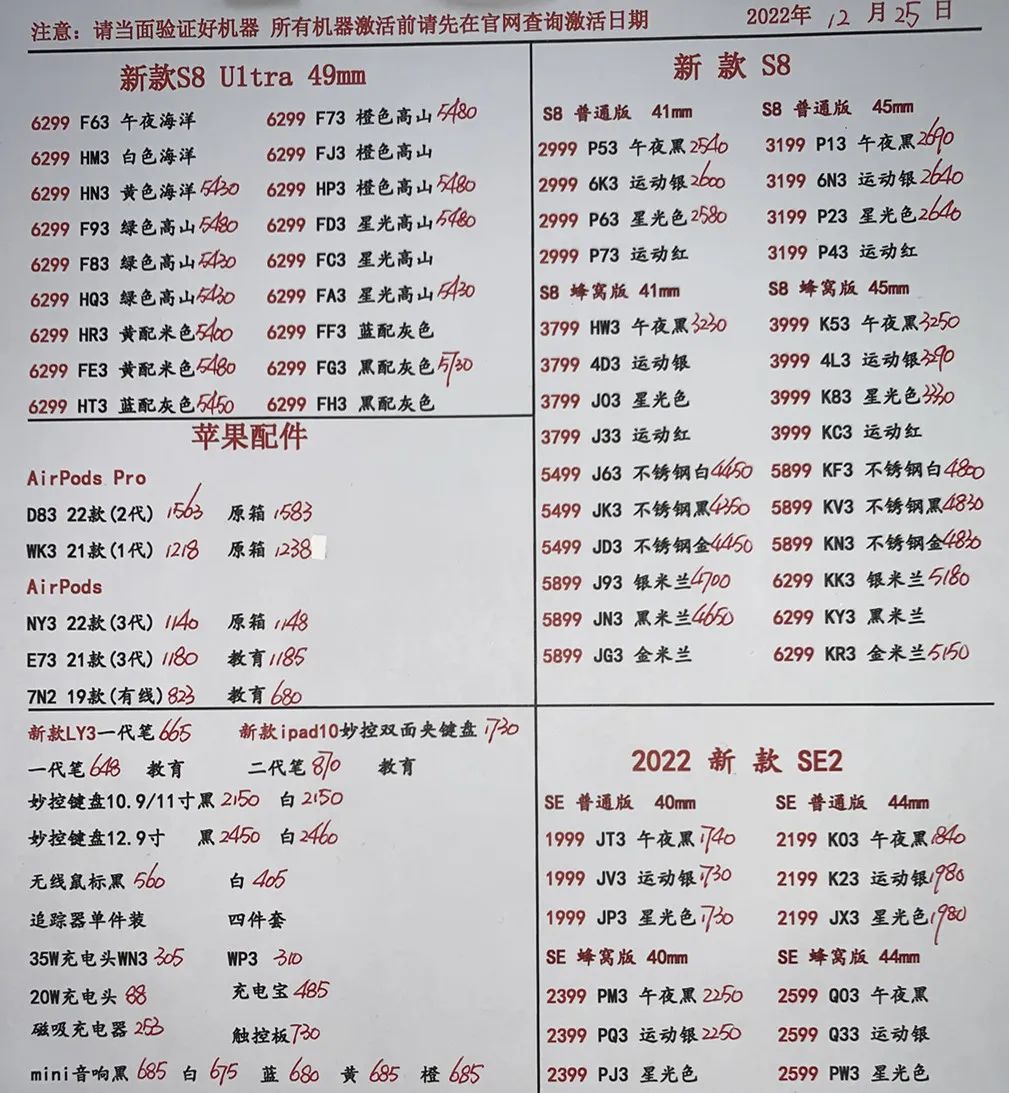 注意: 请当面验证好机器 所有机器激活前请先在官网查询激活日期
2022年 12 月 25 日
新款S8 Ultra 49mm
6299 F63 午夜海洋 6299 F73 橙色高山 5480
6299 HM3 白色海洋 6299 FJ3 橙色高山
6299 HN3 黄色海洋 5430 6299 HP3 橙色高山 5480
6299 F93 绿色高山 5480 6299 FD3 星光高山 5480
6299 F83 绿色高山 5430 6299 FC3 星光高山
6299 HQ3 绿色高山 5430 6299 FA3 星光高山 5430
6299 HR3 黄配米色 5400 6299 FF3 蓝配灰色
6299 FE3 黄配米色 5480 6299 FG3 黑配灰色 5730
6299 HT3 蓝配灰色 5450 6299 FH3 黑配灰色
苹果配件
AirPods Pro
D83 22款(2代) 1563 原箱 1583
WK3 21款(1代) 1218 原箱 1238
AirPods
NY3 22款(3代) 1140 原箱 1148
E73 21款(3代) 1180 教育 1185
7N2 19款(有线) 823 教育 680
新款LY3一代笔 665 新款ipad10妙控双面夹键盘 1730
一代笔 648 教育 二代笔 870 教育
妙控键盘10.9/11寸黑 2150 白 2150
妙控键盘12.9寸 黑 2450 白 2460
无线鼠标黑 560 白 405
追踪器单件装 四件套
35W充电头WN3 305 WP3 310
20W充电头 88 充电宝 485
磁吸充电器 253 触控板 730
mini音响黑 685 白 675 蓝 680 黄 685 橙 685
新 款 S8
S8 普通版 41mm S8 普通版 45mm
2999 P53 午夜黑 2540 3199 P13 午夜黑 2690
2999 6K3 运动银 2600 3199 6N3 运动银 2640
2999 P63 星光色 2580 3199 P23 星光色 2640
2999 P73 运动红 3199 P43 运动红
S8 蜂窝版 41mm S8 蜂窝版 45mm
3799 HW3 午夜黑 3230 3999 K53 午夜黑 3250
3799 4D3 运动银 3999 4L3 运动银 3290
3799 J03 星光色 3999 K83 星光色 3330
3799 J33 运动红 3999 KC3 运动红
5499 J63 不锈钢白 4450 5899 KF3 不锈钢白 4800
5499 JK3 不锈钢黑 4350 5899 KV3 不锈钢黑 4830
5499 JD3 不锈钢金 4450 5899 KN3 不锈钢金 4830
5899 J93 银米兰 4700 6299 KK3 银米兰 5180
5899 JN3 黑米兰 4650 6299 KY3 黑米兰
5899 JG3 金米兰 6299 KR3 金米兰 5150
2022 新 款 SE2
SE 普通版 40mm SE 普通版 44mm
1999 JT3 午夜黑 1740 2199 K03 午夜黑 1840
1999 JV3 运动银 1730 2199 K23 运动银 1980
1999 JP3 星光色 1730 2199 JX3 星光色 1980
SE 蜂窝版 40mm SE 蜂窝版 44mm
2399 PM3 午夜黑 2250 2599 Q03 午夜黑
2399 PQ3 运动银 2250 2599 Q33 运动银
2399 PJ3 星光色 2599 PW3 星光色